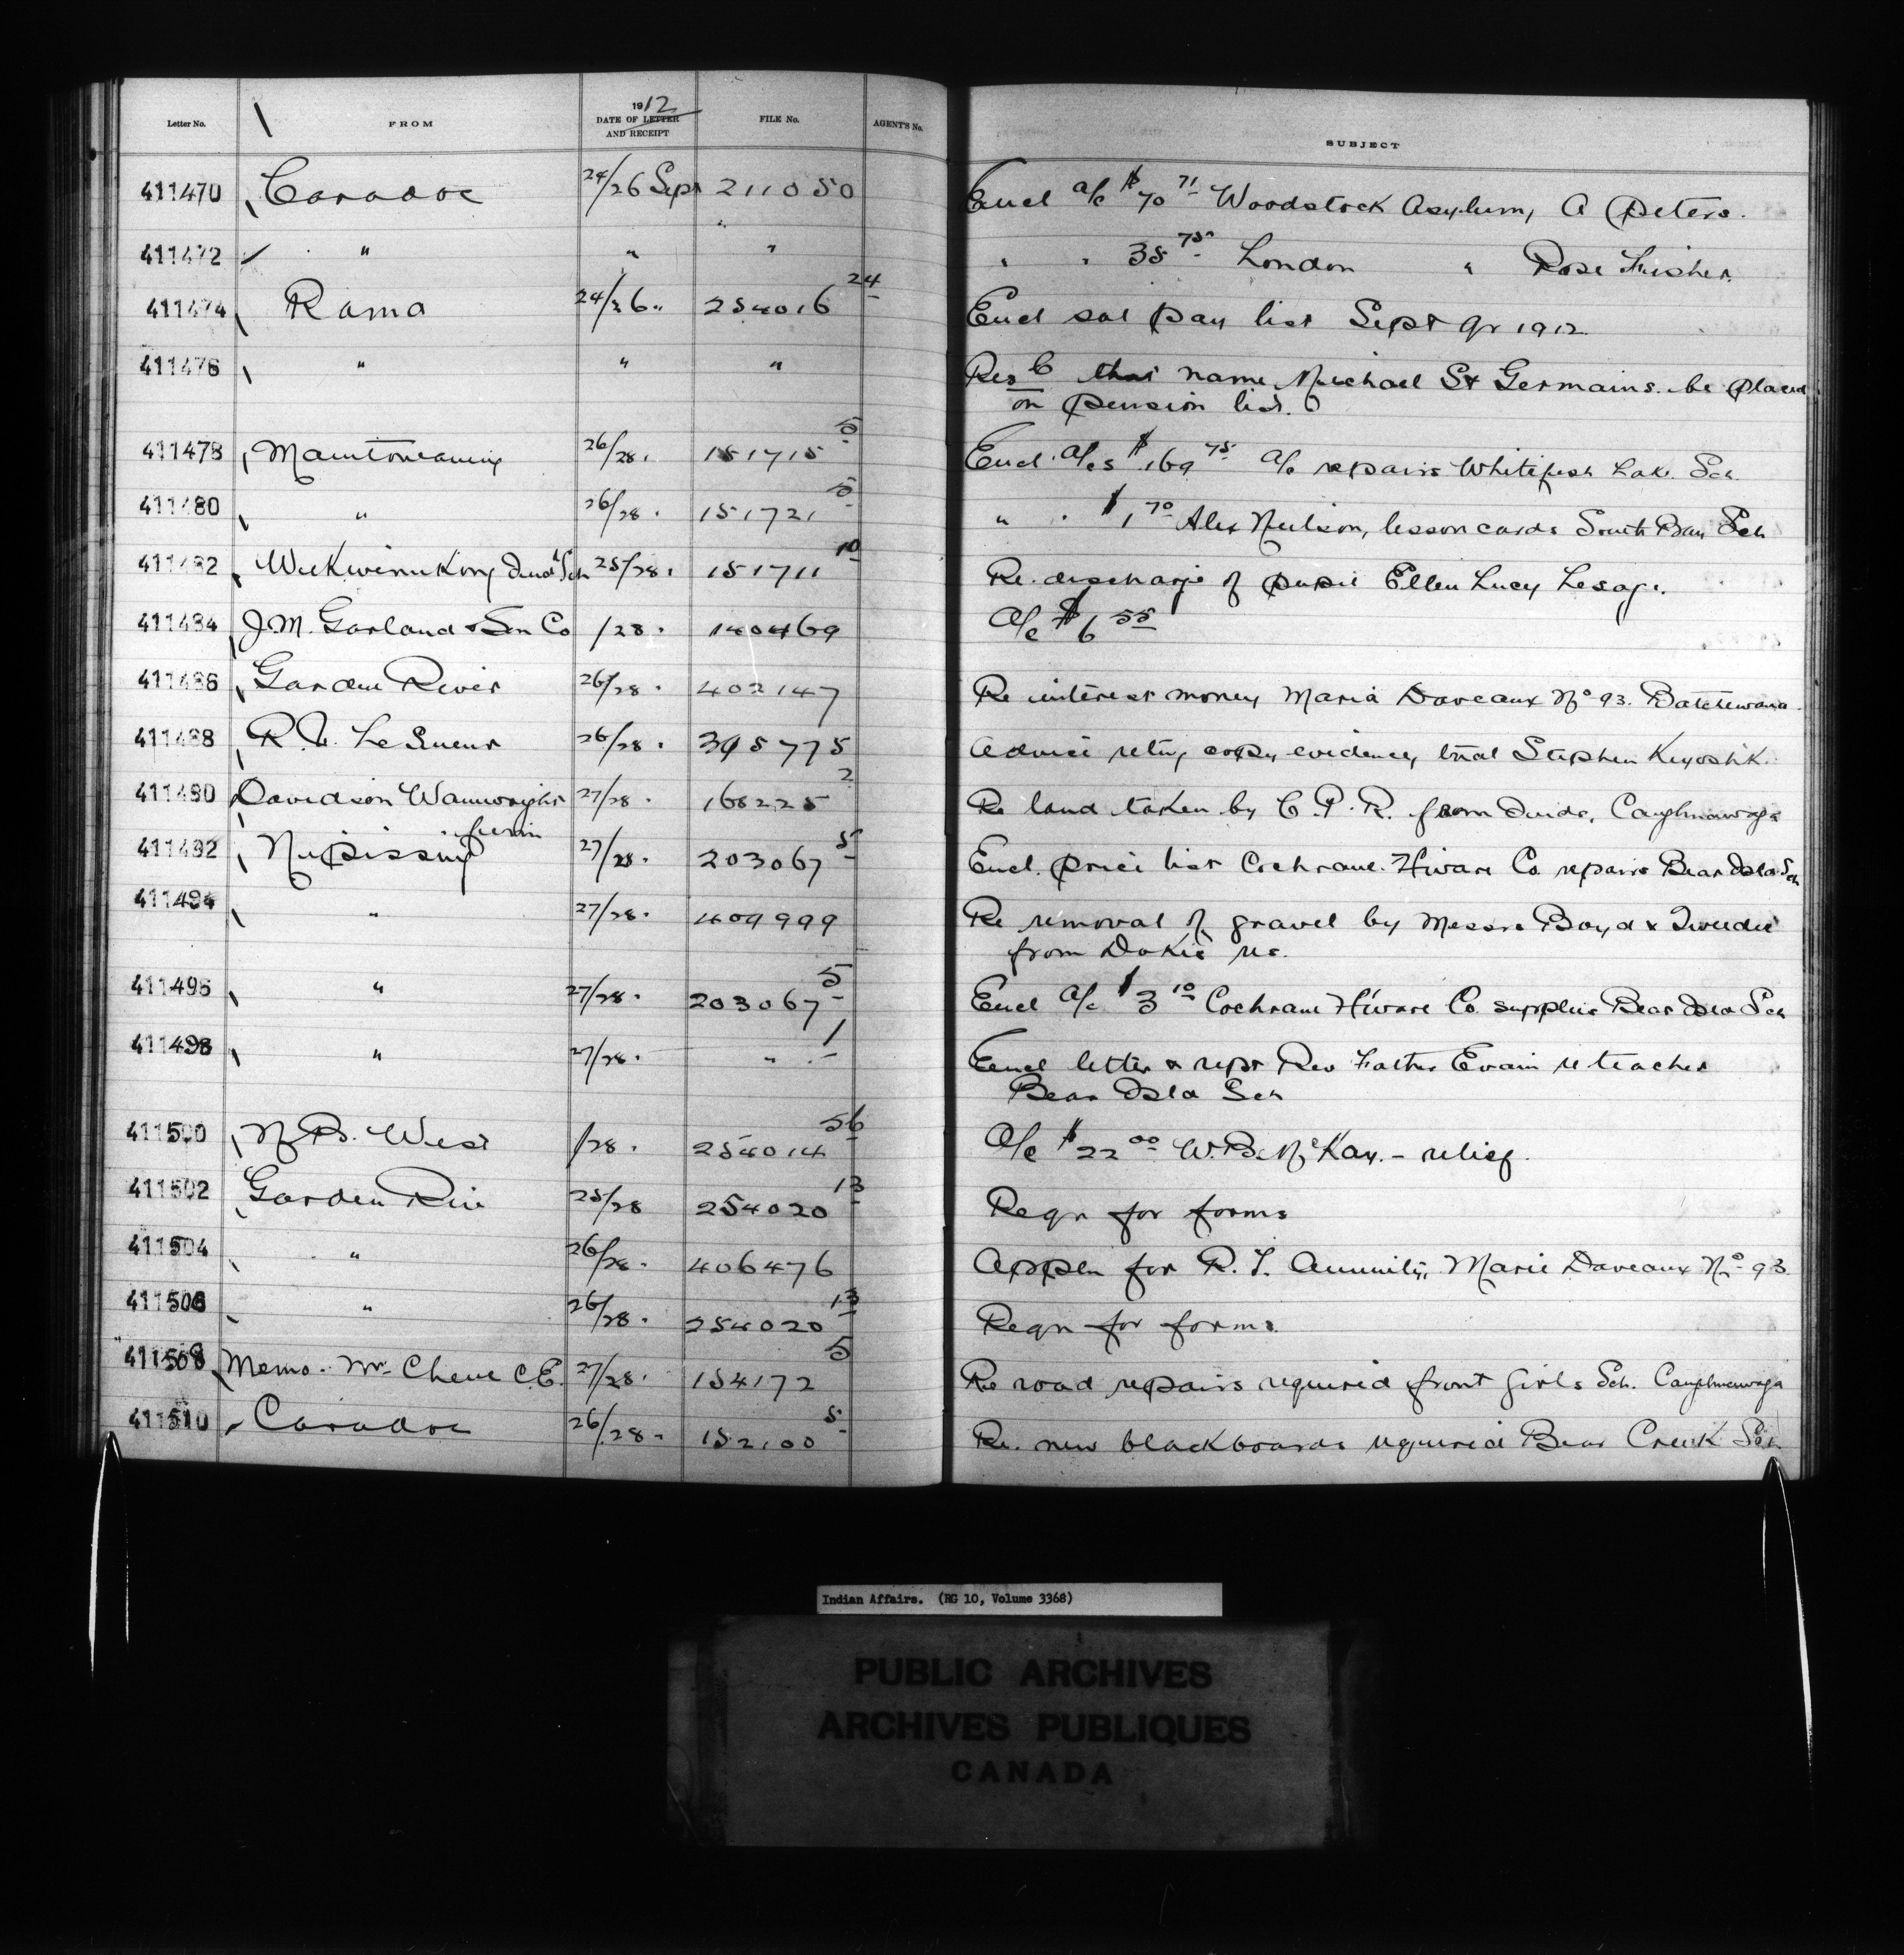 Letter No. FROM 1912 DATE OF LETTER AND RECEIPT FILE No. AGENT'S No. SUBJECT
411470 Caradoc 24/26 Sept 211050 Encl a/c $70 71 Woodstock Asylum, A Peters.
411472 " " " " " 35 75 London " Rose Fisher.
411474 Rama 24/26 " 254016 24 Encl sal pay list Sept qr 1912
411476 " " " Res C that name Michael St Germains. be placed
on pension list.
411478 Manitowaning 26/28. 151715 5 Encl. a/cs $169 75 a/c repairs Whitefish Lake. Sch.
411480 " 26/28. 151721 5 " " $1 70 Alex Neilson, lesson cards South Bay Sch
411482 Wikwemikong Indl Sch 25/28. 151711 10 Re. discharge of pupil Ellen Lucy Lesage.
411484 J.M. Garland & Son Co /28. 140469 A/c $6 55
411486 Garden River 26/28. 402147 Re interest money Maria Daveaux No 93. Batchewana.
411488 R.V. Le Sueur 26/28. 395775 Advice retng copy evidence, trial Stephen Keyoshk.
411490 Davidson Wainwright 27/28. 168225 2 Re land taken by C.P.R. from Inds, Caughnawaga
411492 Nipissing 27/28. 203067 5 Encl. price list Cochrane. H'ware Co repairs Bear Isld Sch
411494 " 27/28. 409999 Re removal of gravel by Messrs Boyd & Tweedie
from Dokis res.
411496 " 27/28. 203067 5 Encl a/c $3 10 Cochrane H'ware Co supplies Bear Isld Sch
411498 " 27/28. " 1 Encl letter & rept Rev Father Evain re teacher
Bear Isld Sch
411500 N.B. West /28. 254014 56 A/c $22 00 W.B. McKay. - relief.
411502 Garden Riv 25/28 254020 13 Reqn for forms
411504 " 26/28. 406476 Appln for R.T. Annuity, Marie Daveaux No 93.
411506 " 26/28. 254020 13 Reqn for forms.
411508 Memo. Mr. Chene C.E. 27/28. 154172 5 Re road repairs required front girls Sch. Caughnawaga
411510 Caradoc 26/28. 152100 5 Re. new blackboards required Bear Creek Sch
Indian Affairs. (RG 10, Volume 3368)
PUBLIC ARCHIVES
ARCHIVES PUBLIQUES
CANADA